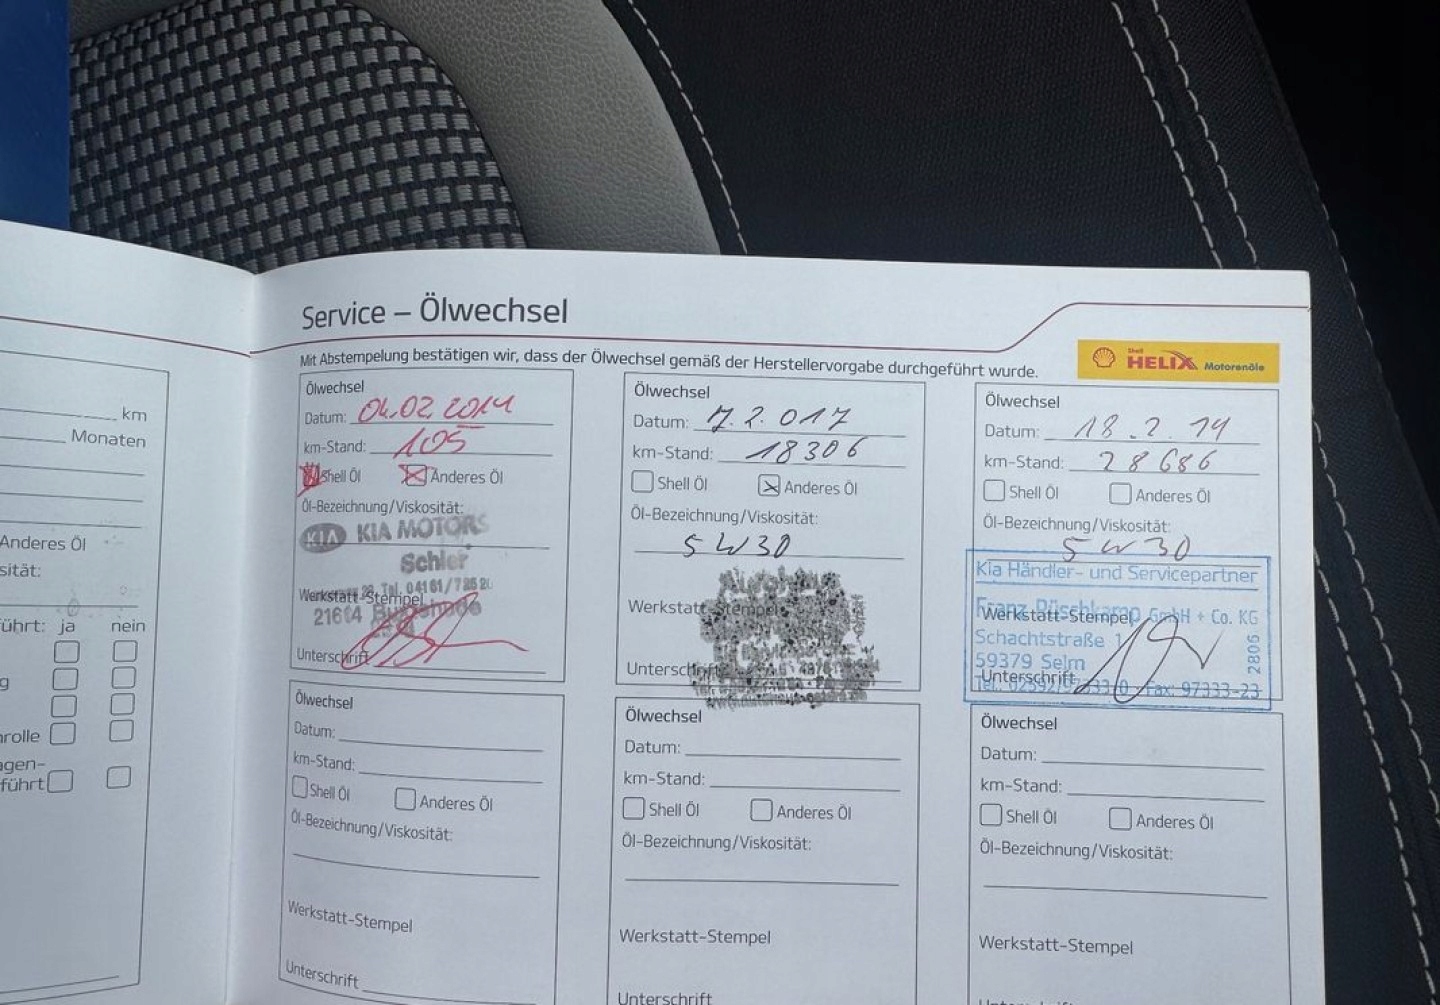 Service – Ölwechsel
Mit Abstempelung bestätigen wir, dass der Ölwechsel gemäß der Herstellervorgabe durchgeführt wurde.
Shell
HELIX Motorenöle
km
Monaten
Anderes Öl
sität:
ührt: ja nein
g
nrolle
agen-
führt
Ölwechsel
Datum: 04.02.2014
km-Stand: 105
Shell Öl Anderes Öl
Öl-Bezeichnung/Viskosität:
KIA KIA MOTORS
Schler
Tel. 04161/
Werkstatt-Stempel
Unterschrift
Ölwechsel
Datum: 7.2.017
km-Stand: 18306
Shell Öl Anderes Öl
Öl-Bezeichnung/Viskosität:
5W30
Werkstatt-Stempel
Unterschrift
Ölwechsel
Datum: 18.2.19
km-Stand: 28686
Shell Öl Anderes Öl
Öl-Bezeichnung/Viskosität:
5W30
Kia Händler- und Servicepartner
GmbH + Co. KG
Werkstatt-Stempel
Schachtstraße 1
59379 Selm
Unterschrift
Fax: 97333-23
2806
Ölwechsel
Datum:
km-Stand:
Shell Öl Anderes Öl
Öl-Bezeichnung/Viskosität:
Werkstatt-Stempel
Unterschrift
Ölwechsel
Datum:
km-Stand:
Shell Öl Anderes Öl
Öl-Bezeichnung/Viskosität:
Werkstatt-Stempel
Unterschrift
Ölwechsel
Datum:
km-Stand:
Shell Öl Anderes Öl
Öl-Bezeichnung/Viskosität:
Werkstatt-Stempel